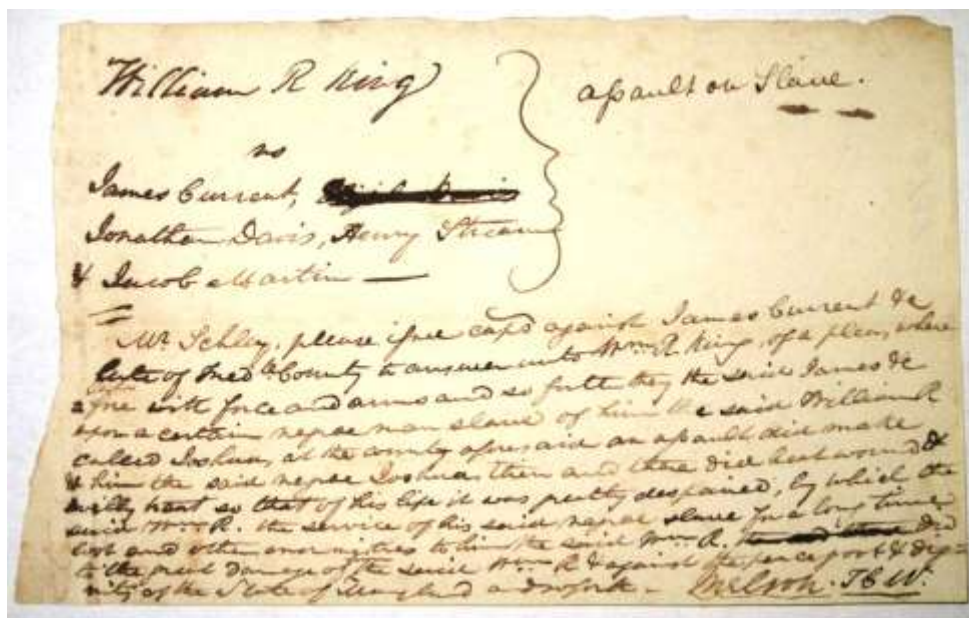 William R King
assault on Slave.
vs
James Current,
Jonathan Davis, Henry Stream
& Jacob Martin —
Mr. Schley, please issue caps against James Current &c
late of Fred.k County to answer unto Wm. R King, of a plea, where
fore with force and arms and so forth they the said James &c
upon a certain negroe man slave of him the said William R
called Joshua, at the county aforesaid an assault did make
& him the said negroe Joshua then and there did beat wound &
evilly treat so that of his life it was greatly despaired, by which the
said Wm. R. the service of his said negroe slave for a long time
lost and other enormities to him the said Wm. R. did
to the great Damage of the said Wm. R & against the peace govt & dig=
nity of the State of Maryland and so forth —